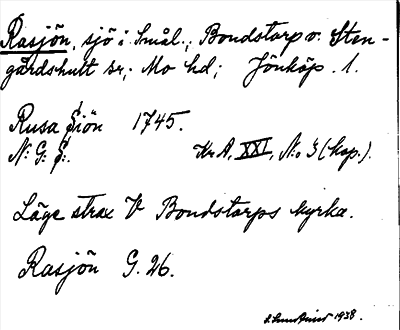 Rasjön, sjö i Smål.; Bondstorp o. Sten-
gårdshult sr; Mo hd; Jönköp. l.
Rusa Siön 1745.
N: G: S:.
Kr A, XXI, N:o 3 (kop.).
Läge strax V Bondstorps kyrka.
Rasjön G. 26.
1938.